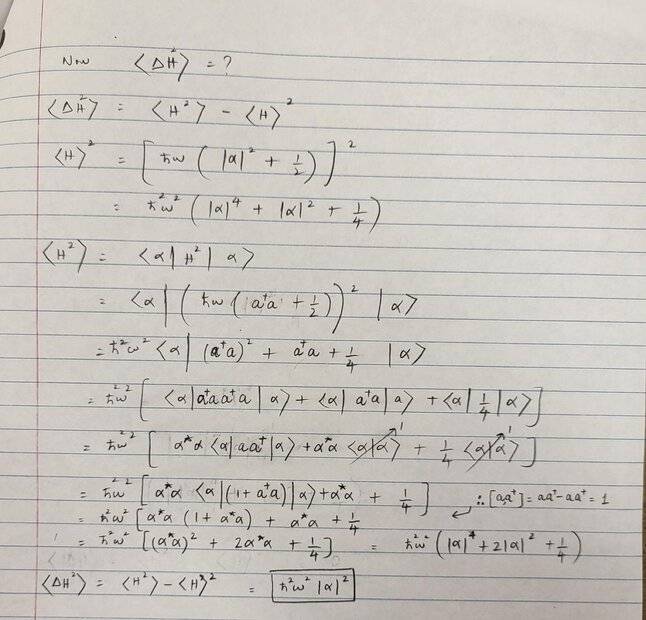 Now ⟨ΔH²⟩ = ?
⟨ΔH²⟩ = ⟨H²⟩ - ⟨H⟩²
⟨H⟩² = [ħω (|α|² + 1/2)]²
= ħ²ω² (|α|⁴ + |α|² + 1/4)
⟨H²⟩ = ⟨α| H² | α⟩
= ⟨α| (ħω (a†a + 1/2))² |α⟩
= ħ²ω² ⟨α| (a†a)² + a†a + 1/4 |α⟩
= ħ²ω² [ ⟨α|a†aa†a| α⟩ + ⟨α| a†a |α⟩ + ⟨α| 1/4 |α⟩ ]
= ħ²ω² [ α*α ⟨α|aa†|α⟩ + α*α ⟨α|α⟩ 1 + 1/4 ⟨α|α⟩ 1 ]
= ħ²ω² [ α*α ⟨α|(1 + a†a)|α⟩ + α*α + 1/4 ] ∴ [a,a†] = aa† - aa† = 1
= ħ²ω² [ α*α (1 + α*α) + α*α + 1/4
= ħ²ω² [(α*α)² + 2α*α + 1/4] = ħ²ω² (|α|⁴ + 2|α|² + 1/4)
⟨ΔH²⟩ = ⟨H²⟩ - ⟨H⟩² = ħ²ω² |α|²